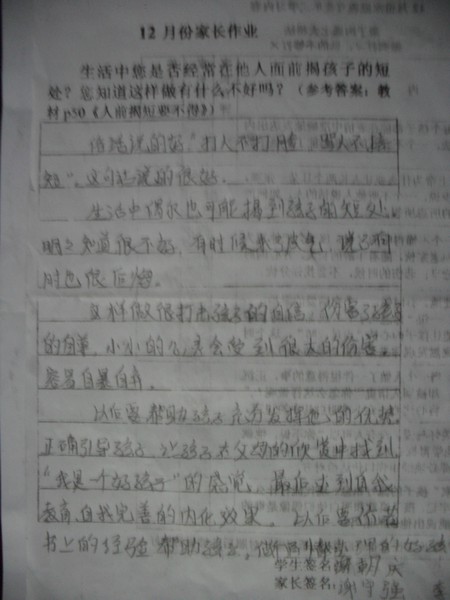 12月份家长作业
生活中您是否经常在他人面前揭孩子的短
处?您知道这样做有什么不好吗?(参考答案:教
材p50《人前揭短要不得》)
俗话说的好"打人不打脸,骂人不揭
短",这句话说的很好。
生活中偶尔也可能揭到孩子的短处
明明知道很不好,有时候来了脾气,
时也很后悔。
这样做很打击孩子的自信,伤害了孩子
的自尊,小小的心灵会受到很大的伤害。
容易自暴自弃。
以后要帮助孩子充分发挥他的优势
正确引导孩子,让孩子在父母的欣赏中找到
"我是一个好孩子"的感觉,最后达到自我
教育,自我完善的内化效果。以后要依书
书上的经验帮助孩子,做
学生签名:
家长签名: